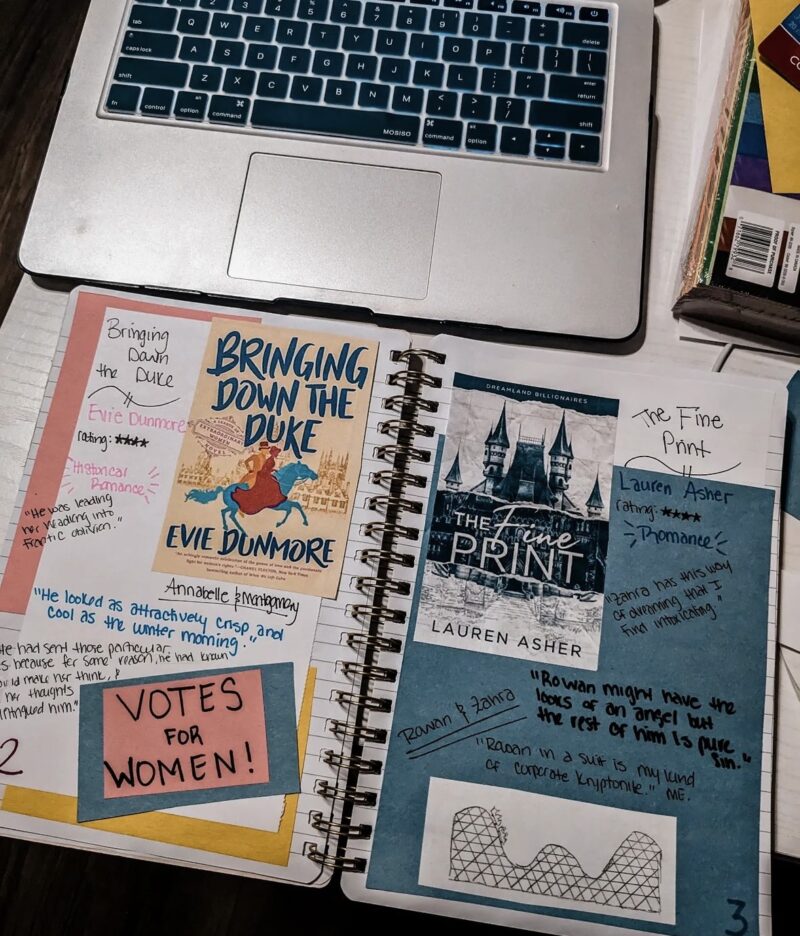 tab Q W E R T Y U I O P { [ } ] | \
caps lock A S D F G H J K L : ; " ' enter return
shift Z X C V B N M < , > . ? / shift
fn control alt option command MOSISO command alt option
delete
PROOF OF PURCHASE
Bringing
Down
the Duke
Evie Dunmore
rating: ★★★★
Historical
Romance
"He was leading
her
frantic oblivion."
BRINGING
DOWN THE
DUKE
EXTRAORDINARY
WOMEN
NOVEL
EVIE DUNMORE
Annabelle & Montgomery
"He looked as attractively crisp and
cool as the winter morning."
He had sent those particular
because for some reason, he had known
make her think, &
her thoughts
intrigued him."
VOTES
FOR
WOMEN!
2
DREAMLAND BILLIONAIRES
THE Fine
PRINT
LAUREN ASHER
The Fine
Print
Lauren Asher
rating: ★★★★
Romance
"Zahra has this way
of disarming that I
find intoxicating."
"Rowan might have the
looks of an angel but
the rest of him is pure
sin."
Rowan & Zahra
"Rowan in a suit is my kind
of corporate kryptonite." ME.
3